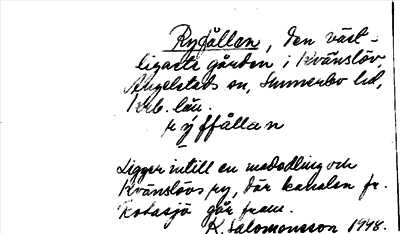 Rygållan, den väst-
ligaste gården i Kvänslöv,
Angelstads sn, Sunnerbo hd,
Krb. län.
rýffållan
Ligger intill en madodling och
Kvänslövs ry, där kanalen fr.
Rotasjö går fram.
K. Salomonsson 1948.